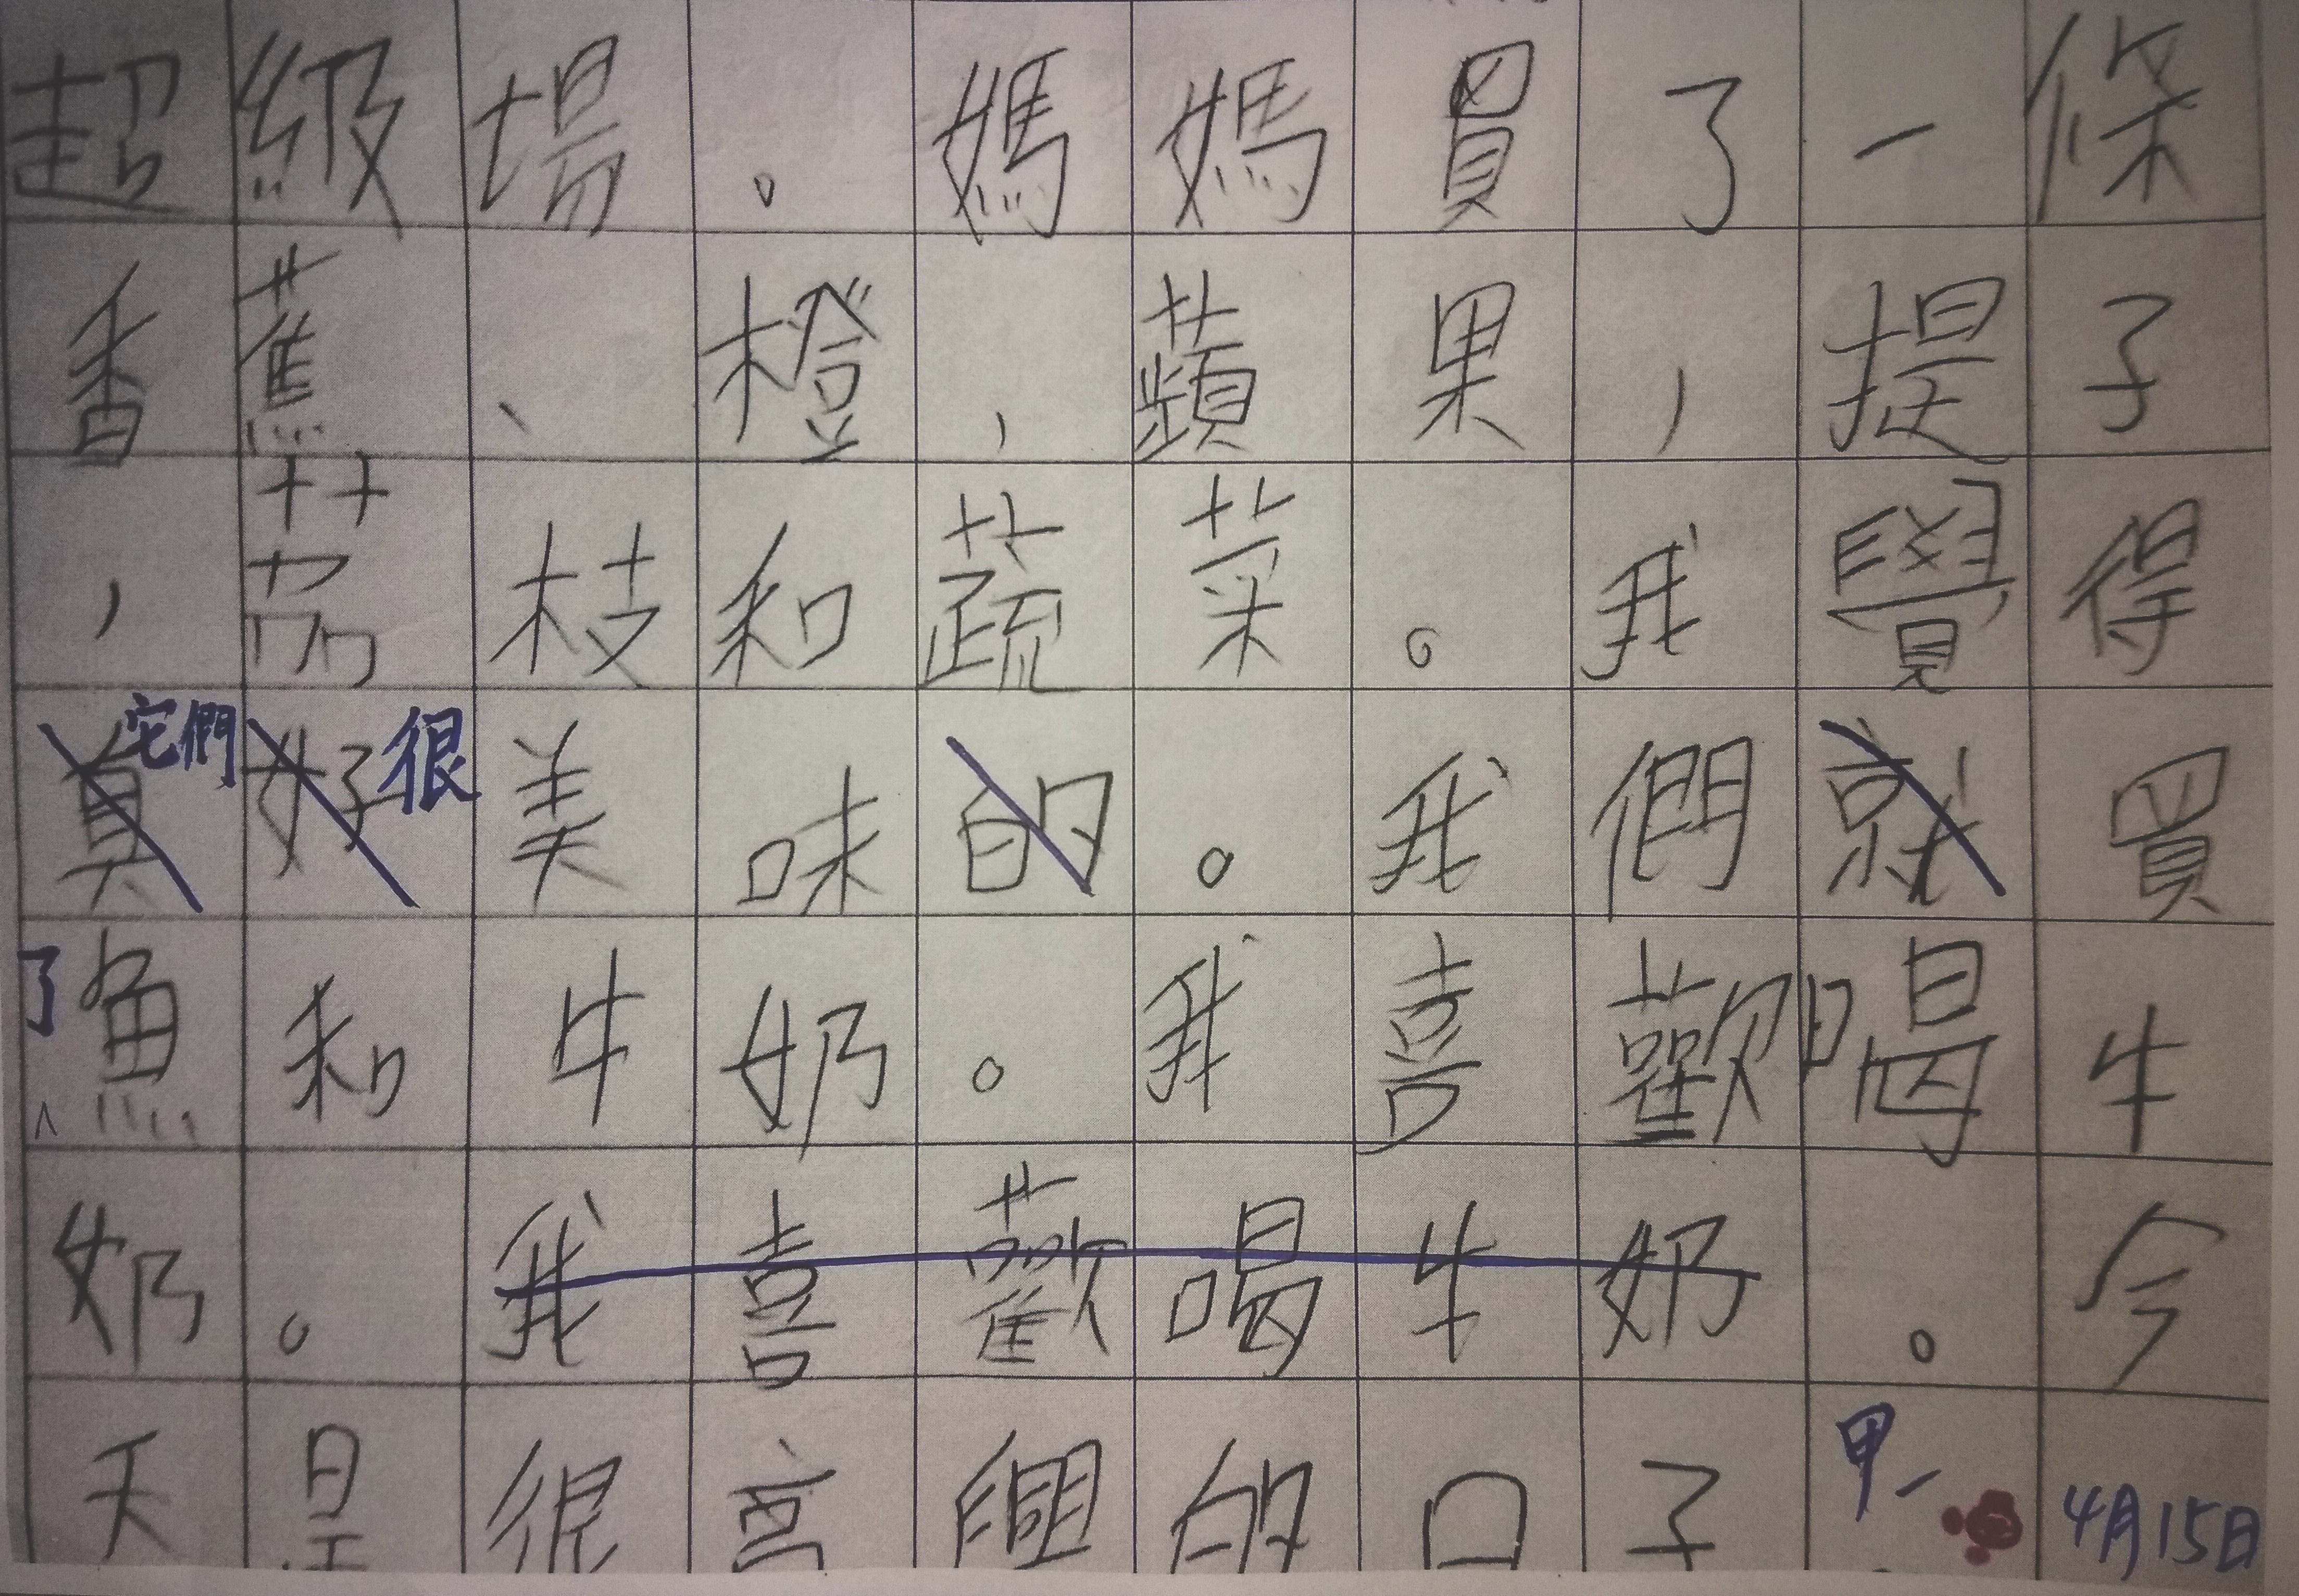 超級場。媽媽買了一條
香蕉、橙,蘋果,提子
,荔枝和蔬菜。我覺得
真它們好很美味的。我們就買
了魚和牛奶。我喜歡喝牛
奶。我喜歡喝牛奶。今
天是很高興的日子
甲-
4月15日